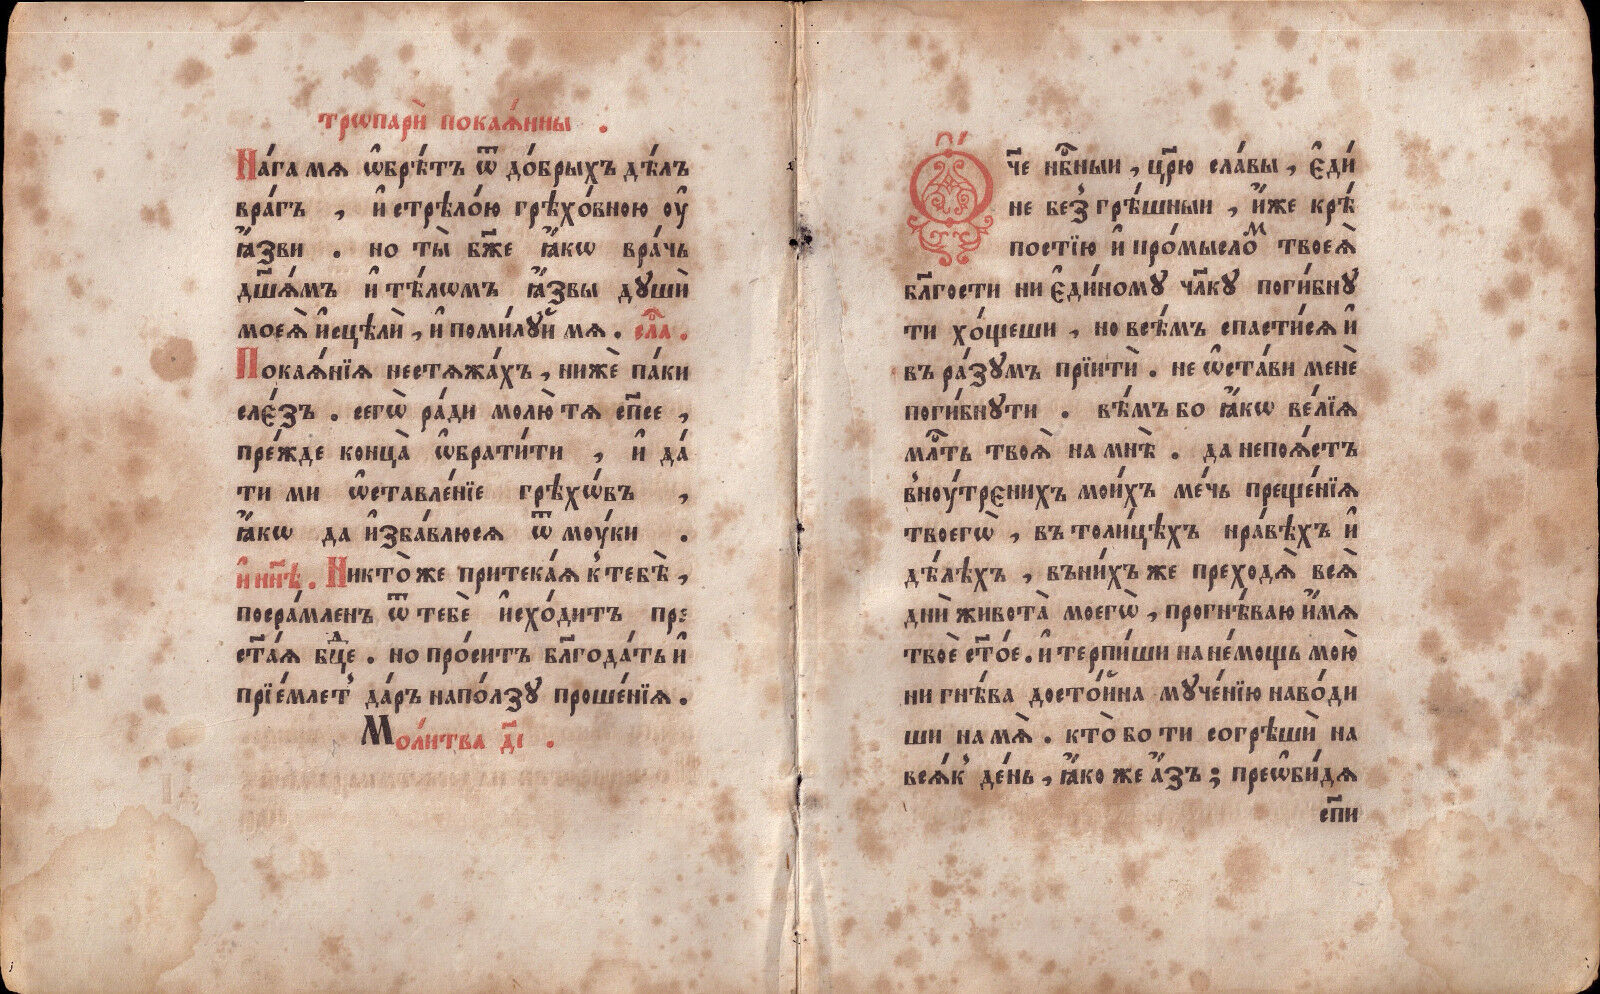 трѡпарѝ покаѧ́нны .
На́га мѧ ѡ҆брѣ́тъ ѿ до́брыхъ дѣ́лъ
вра́гъ , и҆ стрѣло́ю грѣхо́вною оу҆
ꙗ҆́зви . но ты̀ бж҃е ꙗ҆́кѡ вра́чь
дш҃ѧ́мъ и҆ тѣ́лѡмъ ꙗ҆́звы дꙋшѝ
моеѧ̀ и҆сцѣлѝ , и҆ поми́лꙋй мѧ . сла҃ .
Покаѧ́нїѧ нестѧжа́хъ , нижѐ па́ки
сле́зъ . сегѡ̀ ра́ди молю́ тѧ сп҃се ,
пре́жде конца̀ ѡ҆брати́ти , и҆ да́
ти ми ѡ҆ставле́нїе грѣхѡ́въ ,
ꙗ҆́кѡ да и҆збáвлюсѧ ѿ моу́ки .
и҆ нн҃ѣ . Никто̀ же притека́ѧ к̾ тебѣ̀ ,
посра́мленъ ѿ тебѐ и҆схо́дитъ пре
ст҃а́ѧ бцⷣе . но про́ситъ бл҃года́ть и҆
прїе́млет̾ да́ръ напо́лзꙋ проше́нїѧ .
Моли́тва д҃і .
Ѻч҃е нб҃ныи , цр҃ю сла́вы , є҆ди́
не без̾грѣ́шныи , и҆́же крѣ́
постїю и҆ про́мысломⷨ твоеѧ̀
бл҃гости ни є҆ди́номꙋ чл҃кꙋ поги́бнꙋ
ти хо́щеши , но всѣ́мъ спасти́сѧ и҆
въ ра́зꙋмъ прїитѝ . не ѡ҆ста́ви менѐ
поги́бнꙋти . вѣ́мъ бо ꙗ҆́кѡ ве́лїѧ
млⷭ҇ть твоѧ̀ на мнѣ̀ . да непоѧ́стъ
в̾ноу́тренихъ мои́хъ ме́чь преще́нїѧ
твоегѡ̀ , въ толи́цѣхъ нра́вѣхъ и҆
дѣ́лѣхъ , въни́хъ же преходѧ̀ всѧ̀
днѝ живота̀ моегѡ̀ , прогнѣ́ваю и҆́мѧ
твоѐ ст҃о́е . и҆ терпи́ши на не́мощь мою̀
ни гнѣ́ва досто́йна мꙋче́нїю наво́ди
ши на мѧ̀ . кто̀ бо ти согрѣшѝ на
всѧ́к̾ де́нь , ꙗ҆́коже а҆́зъ ; преѡ҆би́дѧ
сп҃и